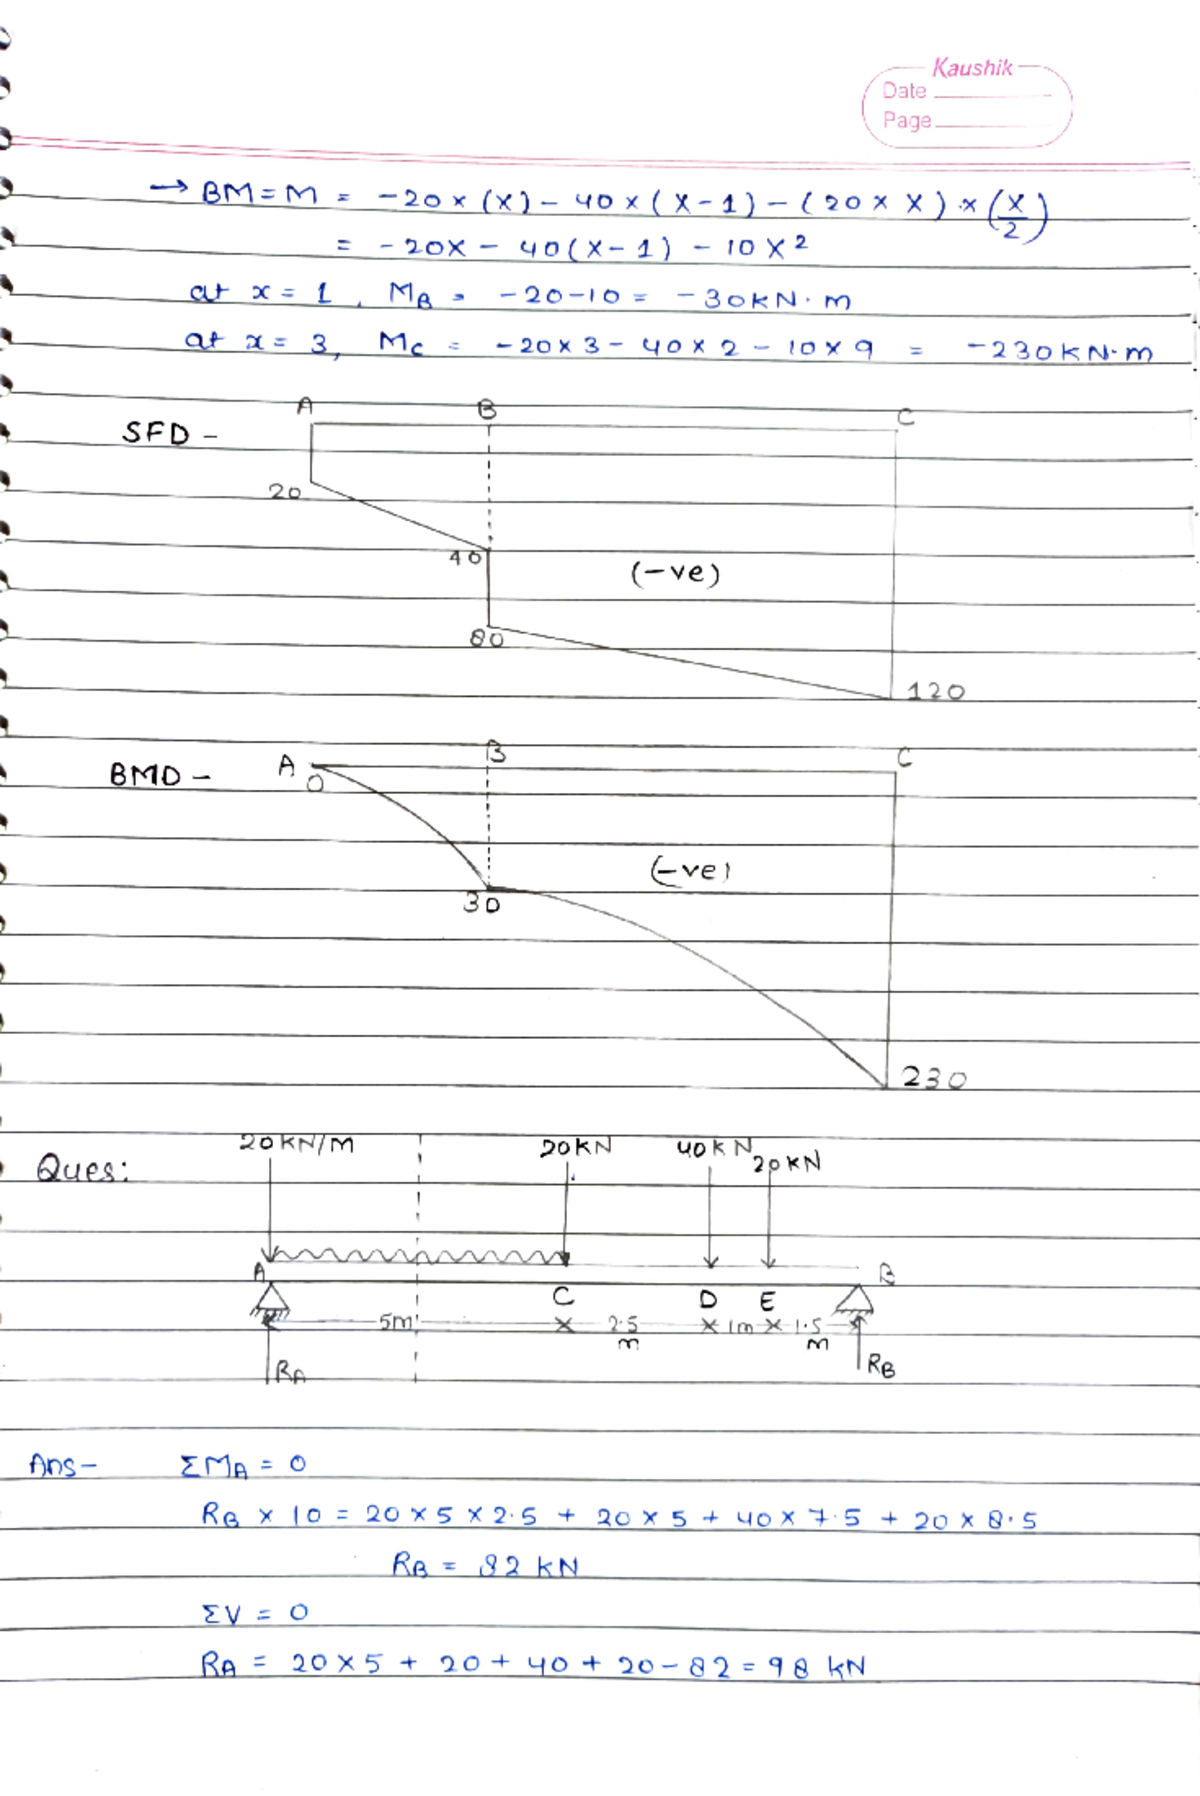 Kaushik
Date
Page
→ BM = M = -20 × (x) - 40 × (x - 1) - (20 × x) × (x/2)
= -20x - 40(x - 1) - 10x²
at x = 1, MB = -20 - 10 = -30 kN·m
at x = 3, Mc = -20 × 3 - 40 × 2 - 10 × 9 = -230 kN·m
A B C
SFD -
20
40
(-ve)
80
120
A B C
BMD -
0
(-ve)
30
230
20 KN/M 20 KN 40 KN 20 KN
Ques:
A B
C D E
5m 2.5 m 1m 1.5 m
RA RB
Ans - ΣMA = 0
RB × 10 = 20 × 5 × 2.5 + 20 × 5 + 40 × 7.5 + 20 × 8.5
RB = 82 KN
ΣV = 0
RA = 20 × 5 + 20 + 40 + 20 - 82 = 98 KN